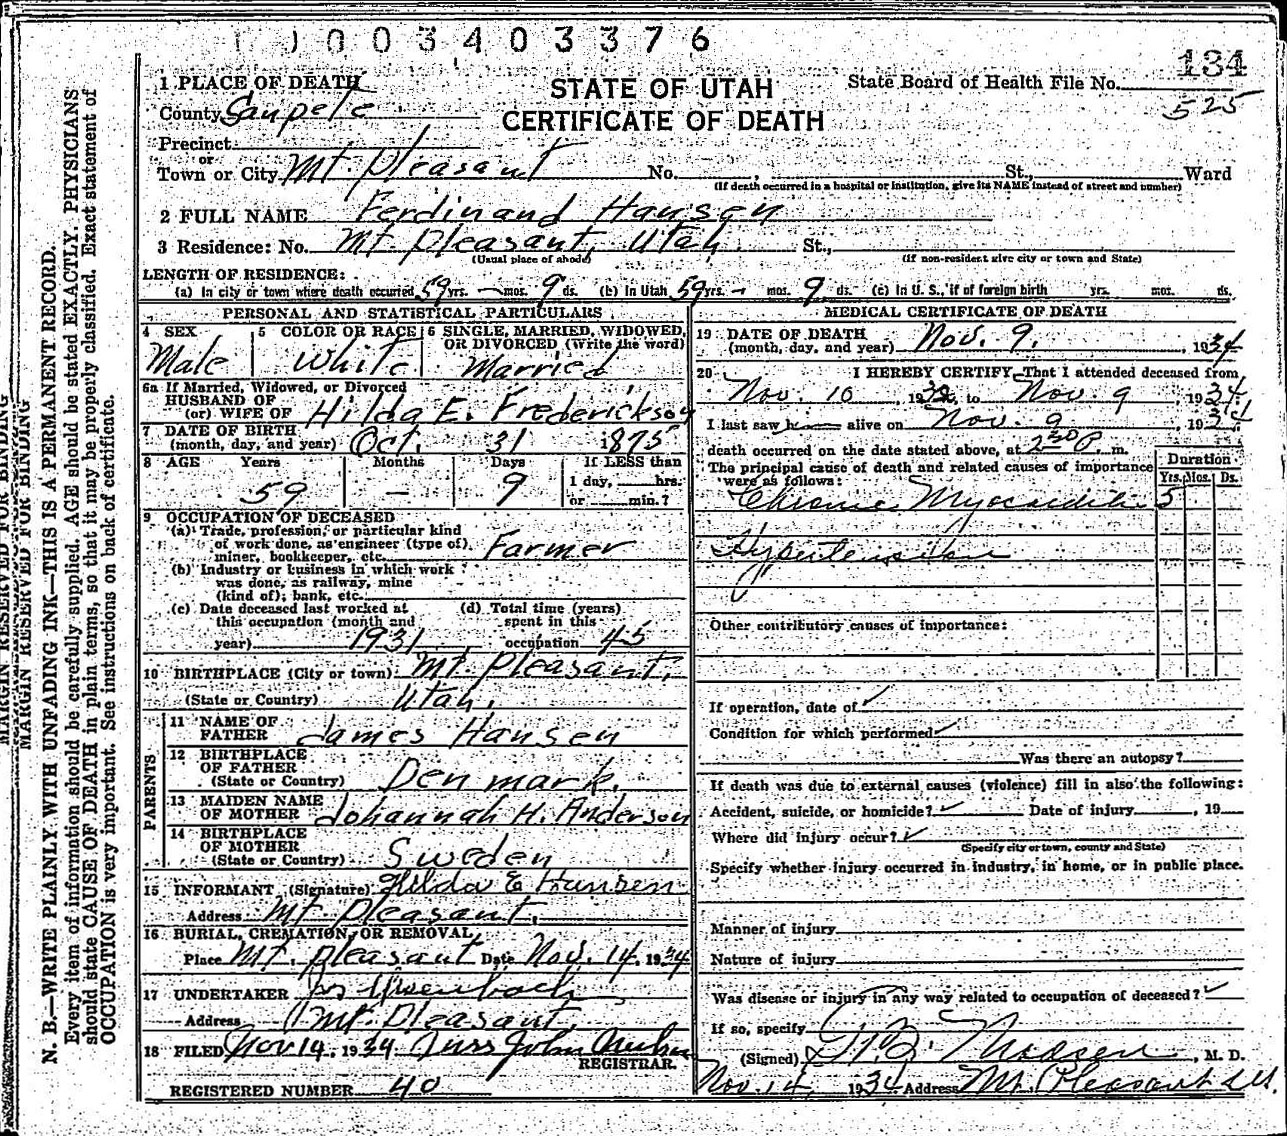 0 0 3 4 0 3 3 7 6
134
1 PLACE OF DEATH
STATE OF UTAH
State Board of Health File No.
County Sanpete
525
CERTIFICATE OF DEATH
Precinct
or
Town or City Mt. Pleasant No. , St., Ward
(If death occurred in a hospital or institution, give its NAME instead of street and number)
2 FULL NAME Ferdinand Hansen
3 Residence: No. Mt. Pleasant, Utah. St.,
(Usual place of abode) (If non-resident give city or town and State)
LENGTH OF RESIDENCE:
(a) In city or town where death occurred 59 yrs. - mos. 9 ds. (b) In Utah 59 yrs. - mos. 9 ds. (c) In U. S., if of foreign birth yrs. mos. ds.
PERSONAL AND STATISTICAL PARTICULARS
4 SEX 5 COLOR OR RACE 6 SINGLE, MARRIED, WIDOWED,
OR DIVORCED (Write the word)
Male White Married
6a If Married, Widowed, or Divorced
HUSBAND OF
(or) WIFE OF Hilda E. Frederickson
7 DATE OF BIRTH
(month, day, and year) Oct. 31 1875
8 AGE Years Months Days If LESS than
1 day, hrs.
59 - 9 or min.?
9 OCCUPATION OF DECEASED
(a) Trade, profession, or particular kind
of work done, as engineer (type of)
miner, bookkeeper, etc. Farmer
(b) Industry or business in which work
was done, as railway, mine
(kind of); bank, etc.
(c) Date deceased last worked at (d) Total time (years)
this occupation (month and spent in this
year) 1931 occupation 45
10 BIRTHPLACE (City or town) Mt. Pleasant,
(State or Country) Utah.
PARENTS
11 NAME OF
FATHER James Hansen
12 BIRTHPLACE
OF FATHER
(State or Country) Denmark.
13 MAIDEN NAME
OF MOTHER Johannah H. Anderson
14 BIRTHPLACE
OF MOTHER
(State or Country) Sweden
15 INFORMANT (Signature) Hilda E Hansen
Address Mt Pleasant.
16 BURIAL, CREMATION, OR REMOVAL
Place Mt. Pleasant Date Nov. 14. 1934
17 UNDERTAKER
Address Mt. Pleasant
18 FILED Nov 14. 1934 John
REGISTRAR.
REGISTERED NUMBER 40
MEDICAL CERTIFICATE OF DEATH
19 DATE OF DEATH
(month, day, and year) Nov. 9. , 1934
20 I HEREBY CERTIFY, That I attended deceased from
Nov. 10 , 19 , to Nov. 9 , 1934
I last saw h alive on Nov. 9 , 1934
death occurred on the date stated above, at 2 30 P. m.
The principal cause of death and related causes of importance
were as follows:
Duration
Yrs. Mos. Ds.
Chronic Myocarditis 5
Hypertension
Other contributory causes of importance:
If operation, date of ✓
Condition for which performed ✓
Was there an autopsy?
If death was due to external causes (violence) fill in also the following:
Accident, suicide, or homicide? ✓ Date of injury , 19
Where did injury occur? ✓
(Specify city or town, county and State)
Specify whether injury occurred in industry, in home, or in public place.
Manner of injury
Nature of injury
Was disease or injury in any way related to occupation of deceased? ✓
If so, specify
(Signed) Madsen , M. D.
Nov. 14 1934 Address Mt. Pleasant Ut.
MARGIN RESERVED FOR BINDING
MARGIN RESERVED FOR BINDING
N. B.—WRITE PLAINLY, WITH UNFADING INK—THIS IS A PERMANENT RECORD.
Every item of information should be carefully supplied. AGE should be stated EXACTLY. PHYSICIANS
should state CAUSE OF DEATH in plain terms, so that it may be properly classified. Exact statement of
OCCUPATION is very important. See instructions on back of certificate.